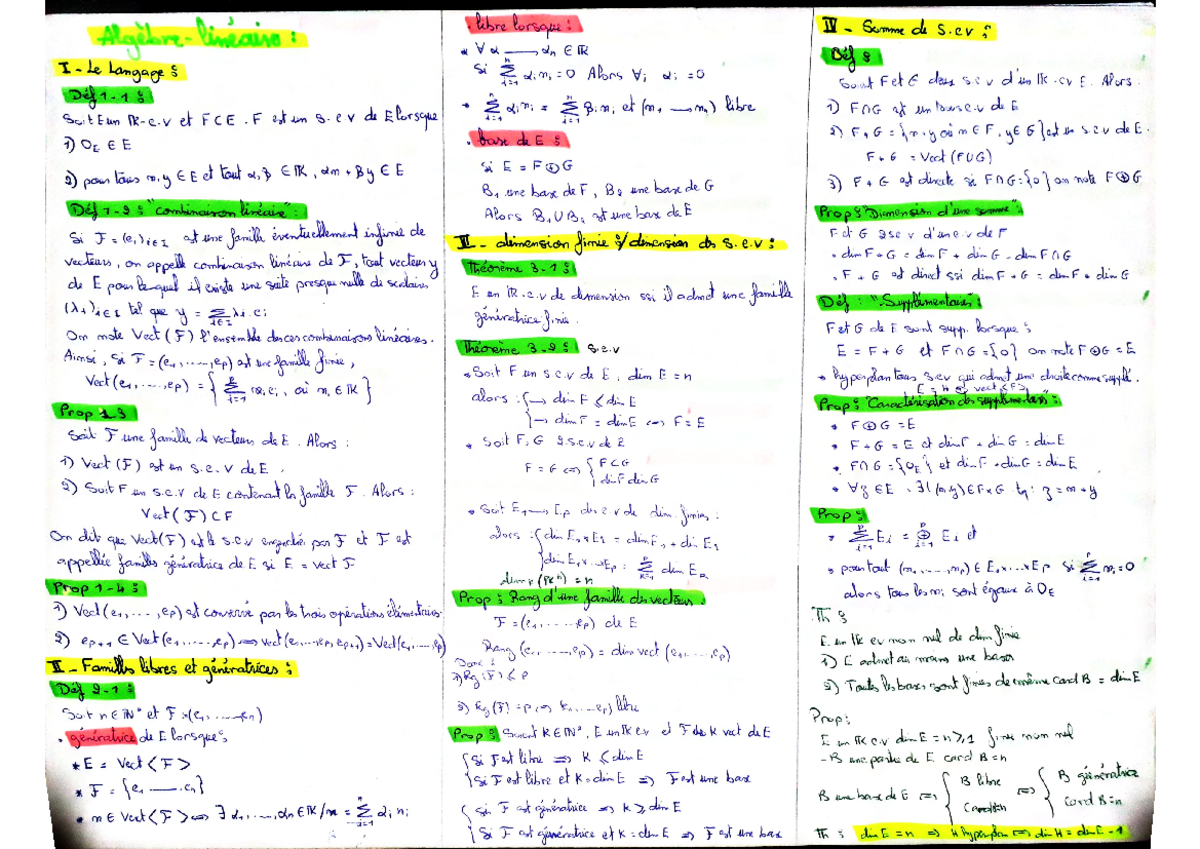 Algèbre-linéaire :
I - Le Langage :
Déf 1-1 :
Soit E un IK-e.v et F ⊂ E. F est un s.e.v de E lorsque
1) 0E ∈ E
2) pour tous x, y ∈ E et tout α, β ∈ IK, αx + βy ∈ E
Déf 1-2 : "combinaison linéaire" :
Si F = (ei)i∈I est une famille éventuellement infinie de
vecteurs, on appelle combinaison linéaire de F, tout vecteur y
de E pour lequel il existe une suite presque nulle de scalaires
(λi)i∈I tel que y = Σ i∈I λi.ei
On note Vect(F) l'ensemble des ces combinaisons linéaires.
Ainsi, Si F = (e1, ....., ep) est une famille finie,
Vect(e1, ...., ep) = { Σ i=1 p xi ei, où xi ∈ IK }
Prop 1.3
Soit F une famille de vecteurs de E. Alors :
1) Vect(F) est un s.e.v de E.
2) Soit F un s.e.v de E contenant la famille F. Alors :
Vect(F) ⊂ F
On dit que Vect(F) est le s.e.v engendré par F et F est
appellée famille génératrice de E si E = vect F
Prop 1-4 :
1) Vect(e1, ...., ep) est conservé par les trois opérations élémentaires.
2) ep+1 ∈ Vect(e1, ....., ep) ⟺ vect(e1, ...., ep, ep+1) = Vect(e1, ...., ep)
II - Familles libres et génératrices :
Déf 2-1 :
Soit n ∈ IN* et F = (e1, ....., en)
. génératrice de E lorsque :
* E = Vect<F>
* F = {e1 ..... en}
* x ∈ Vect<F> ⟺ ∃ α1, ...., αn ∈ IK / x = Σ i=1 n αi xi
. libre lorsque :
* ∀ α ...... αn ∈ IK
Si Σ i=1 n αi xi = 0 Alors ∀i αi = 0
* Σ i=1 n αi xi = Σ i=1 n βi xi et (x1 ..... xn) libre
. base de E :
Si E = F ⊕ G
B1 une base de F, B2 une base de G
Alors B1 ∪ B2 est une base de E
III - dimension finie / dimension des s.e.v :
Théorème 3-1 :
E un IK-e.v de dimension ssi il admet une famille
génératrice finie.
Théorème 3-2 : s.e.v
* Soit F un s.e.v de E, dim E = n
alors : { → dim F ≤ dim E
→ dim F = dim E ⟺ F = E
* Soit F, G 2 s.e.v de E
F = G ⟺ { F ⊂ G
dim F dim G
* Soit E1 ..... Ep des e.v de dim. finies :
alors : { dim E1 x E2 = dim E1 + dim E2
dim E1 x ... x Ep = Σ k=1 p dim Ek
dim IK (IK^n) = n
Prop : Rang d'une famille des vecteurs :
F = (e1, ..... ep) de E
Rang (e1, ....., ep) = dim vect (e1, ...., ep)
Donc :
1) Rg(F) ≤ p
2) Rg(F) = p ⟺ (e1, ...., ep) libre
Prop : Soient K ∈ IN*, E un IK e.v et F de K vect de E
{ Si F est libre ⟹ K ≤ dim E
Si F est libre et K = dim E ⟹ F est une base
{ Si F est génératrice ⟹ K ≥ dim E
Si F est génératrice et K = dim E ⟹ F est une base
IV - Somme de s.e.v :
Déf :
Soit F et G deux s.e.v d'un IK-ev E. Alors :
1) F∩G est un sous e.v de E
2) F+G = {x+y où x ∈ F, y ∈ G} est un s.e.v de E.
F+G = Vect(F∪G)
3) F+G est directe si F∩G = {0} on note F⊕G
Prop : "Dimension d'une somme" :
F et G 2 s.e.v d'un e.v de F
. dim F+G = dim F + dim G - dim F∩G
. F + G est direct ssi dim F+G = dim F + dim G
Déf : "Supplémentaires" :
F et G de E sont supp. lorsque :
E = F + G et F∩G = {0} on note F⊕G = E
* hyperplan tous s.e.v qui admet une droite comme supplé.
E = H ⊕ vect<F>
Prop : "Caractérisation des supplémentaires" :
* F⊕G = E
* F+G = E et dim F + dim G = dim E
* F∩G = {0E} et dim F + dim G = dim E
* ∀z ∈ E, ∃!(x,y) ∈ FxG tq : z = x+y
Prop :
* Σ i=1 p Ei = ⊕ i=1 p Ei et
* pour tout (x1, ...., xp) ∈ E1 x ... x Ep Si Σ i=1 p xi = 0
alors tous les xi sont égaux à 0E
Th :
E un IK ev non nul de dim finie
1) E admet au moins une base
2) Toutes les bases sont finies de même card B = dim E
Prop :
E un IK e.v dim E = n ≥ 1 finie non nul
- B une partie de E card B = n
B une base de E ⟺ { B libre
Card B = n
⟺ { B génératrice
card B = n
Th : dim E = n ⟹ H hyperplan ⟺ dim H = dim E - 1